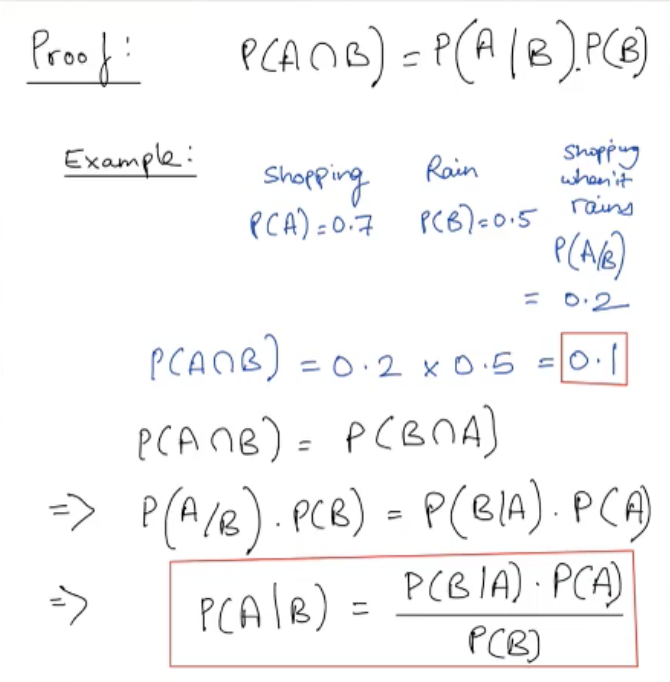 Proof: P(A∩B) = P(A|B).P(B)
Example:
Shopping
P(A)=0.7
Rain
P(B)=0.5
Shopping
when it
rains
P(A/B)
= 0.2
P(A∩B) = 0.2 x 0.5 = 0.1
P(A∩B) = P(B∩A)
=> P(A/B). P(B) = P(B|A). P(A)
=> P(A|B) = P(B|A). P(A)
P(B)